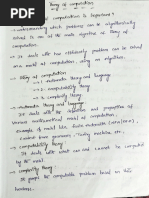 Theory of computation
computation is important?
→ understanding which problems can be algorithmically
solved is one of the main objective of theory of
computation.
→ It deals with how efficiently problems can be solved
on a model of computation, using an algorithm.
→ Theory of computation
1. automata theory and language
2. computability theory
3. complexity theory
→ automata theory and language
It deals with the definition and properties of
various mathematical model of computation.
example of model like finite automata
context free grammars, turing machine etc.
→ computability theory
It deals with what can and cannot be computed
by the model
→ complexity theory
It groups the computable problems based on their
hardness.